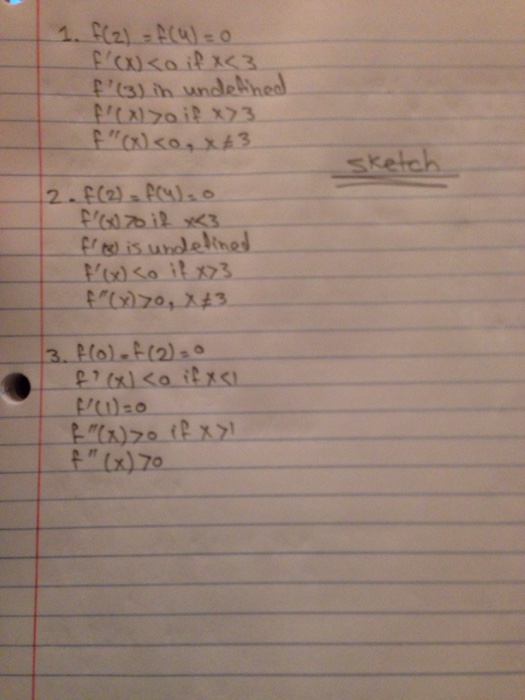 1. f(2) = f(4) = 0
f'(x) < 0 if x < 3
f'(3) in undefined
f'(x) > 0 if x > 3
f"(x) < 0, x ≠ 3
sketch
2. f(2) = f(4) = 0
f'(x) > 0 if x < 3
is undefined
f'(x) < 0 if x > 3
f"(x) > 0, x ≠ 3
3. f(0) = f(2) = 0
f'(x) < 0 if x < 1
f'(1) = 0
f"(x) > 0 if x > 1
f"(x) > 0